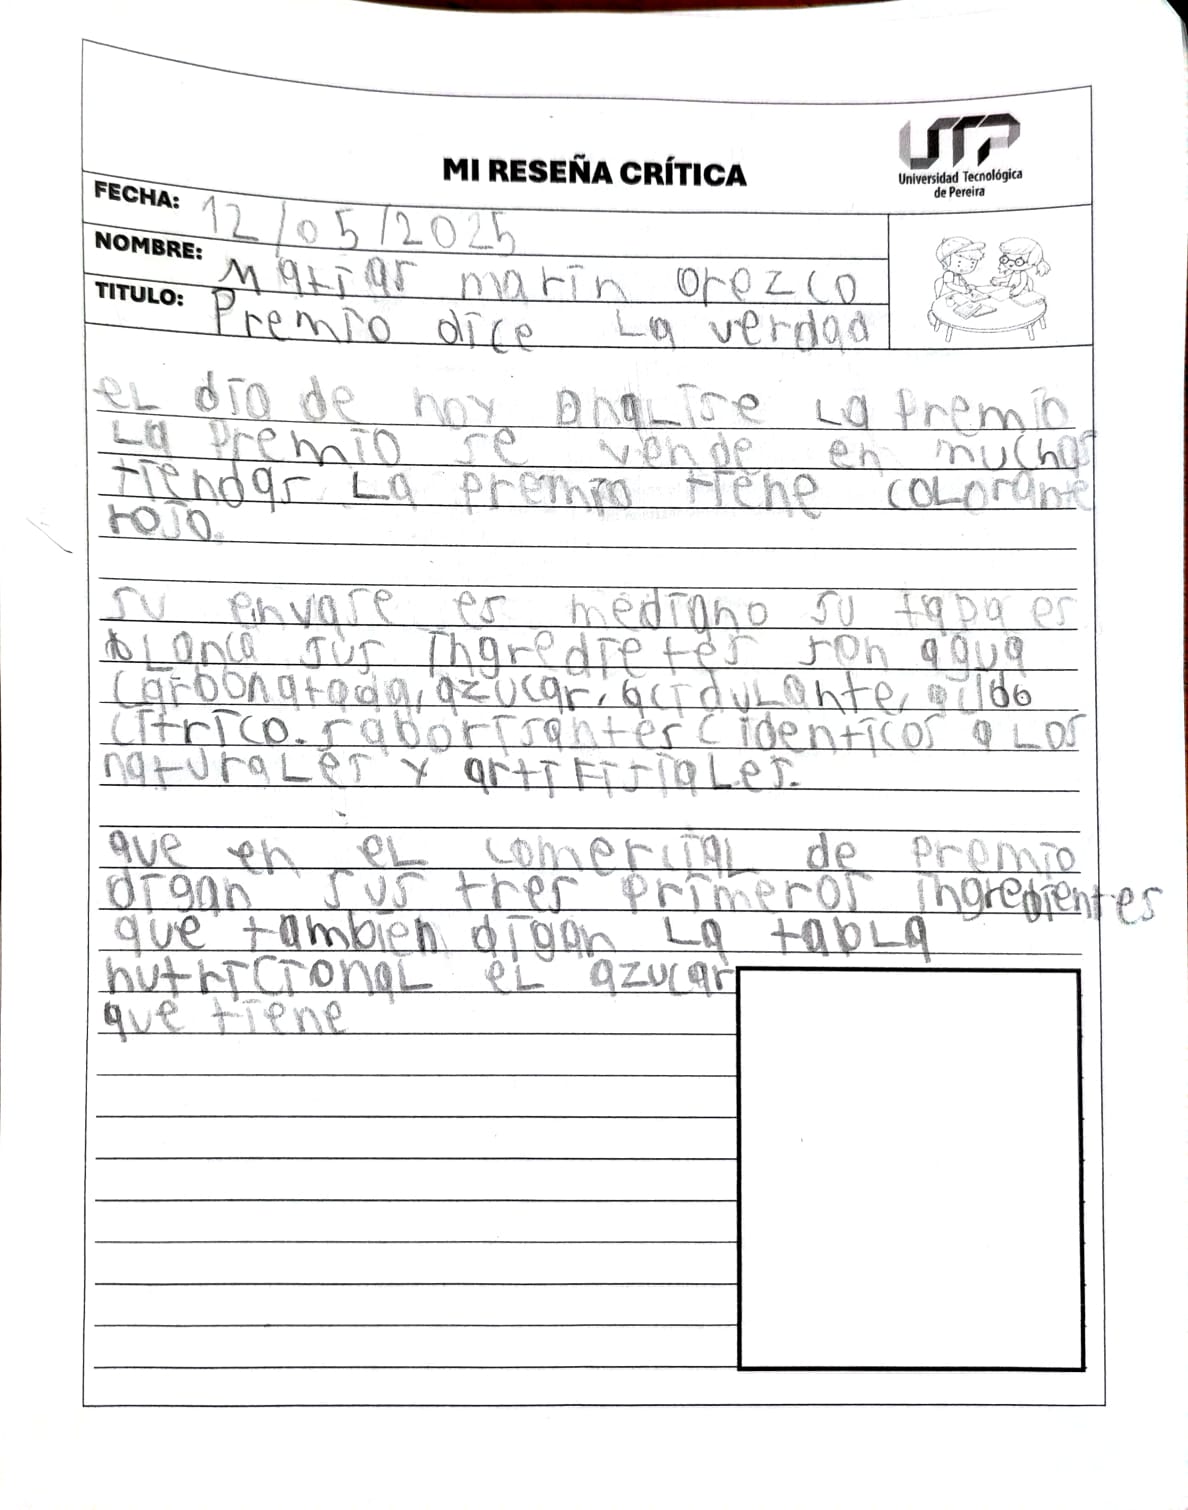 MI RESEÑA CRÍTICA
UTP
Universidad Tecnológica
de Pereira
FECHA: 12/05/2025
NOMBRE: Matias marin orozco
TITULO: Premio dice La verdad
eL dia de hoy anaLise La Premio
La premio se vende en muchas
tiendas La premio tiene coLorante
rojo.
su envase es mediano su tapa es
bLanca sus ingredietes son agua
carbonatada, azucar, aciduLante, acido
citrico. saborisantes c identicos a Los
naturaLes y artifisiaLes.
que en eL comerciaL de premio
digan sus tres primeros ingredientes
que tambien digan La tabLa
nutricionaL eL azucar
que tiene